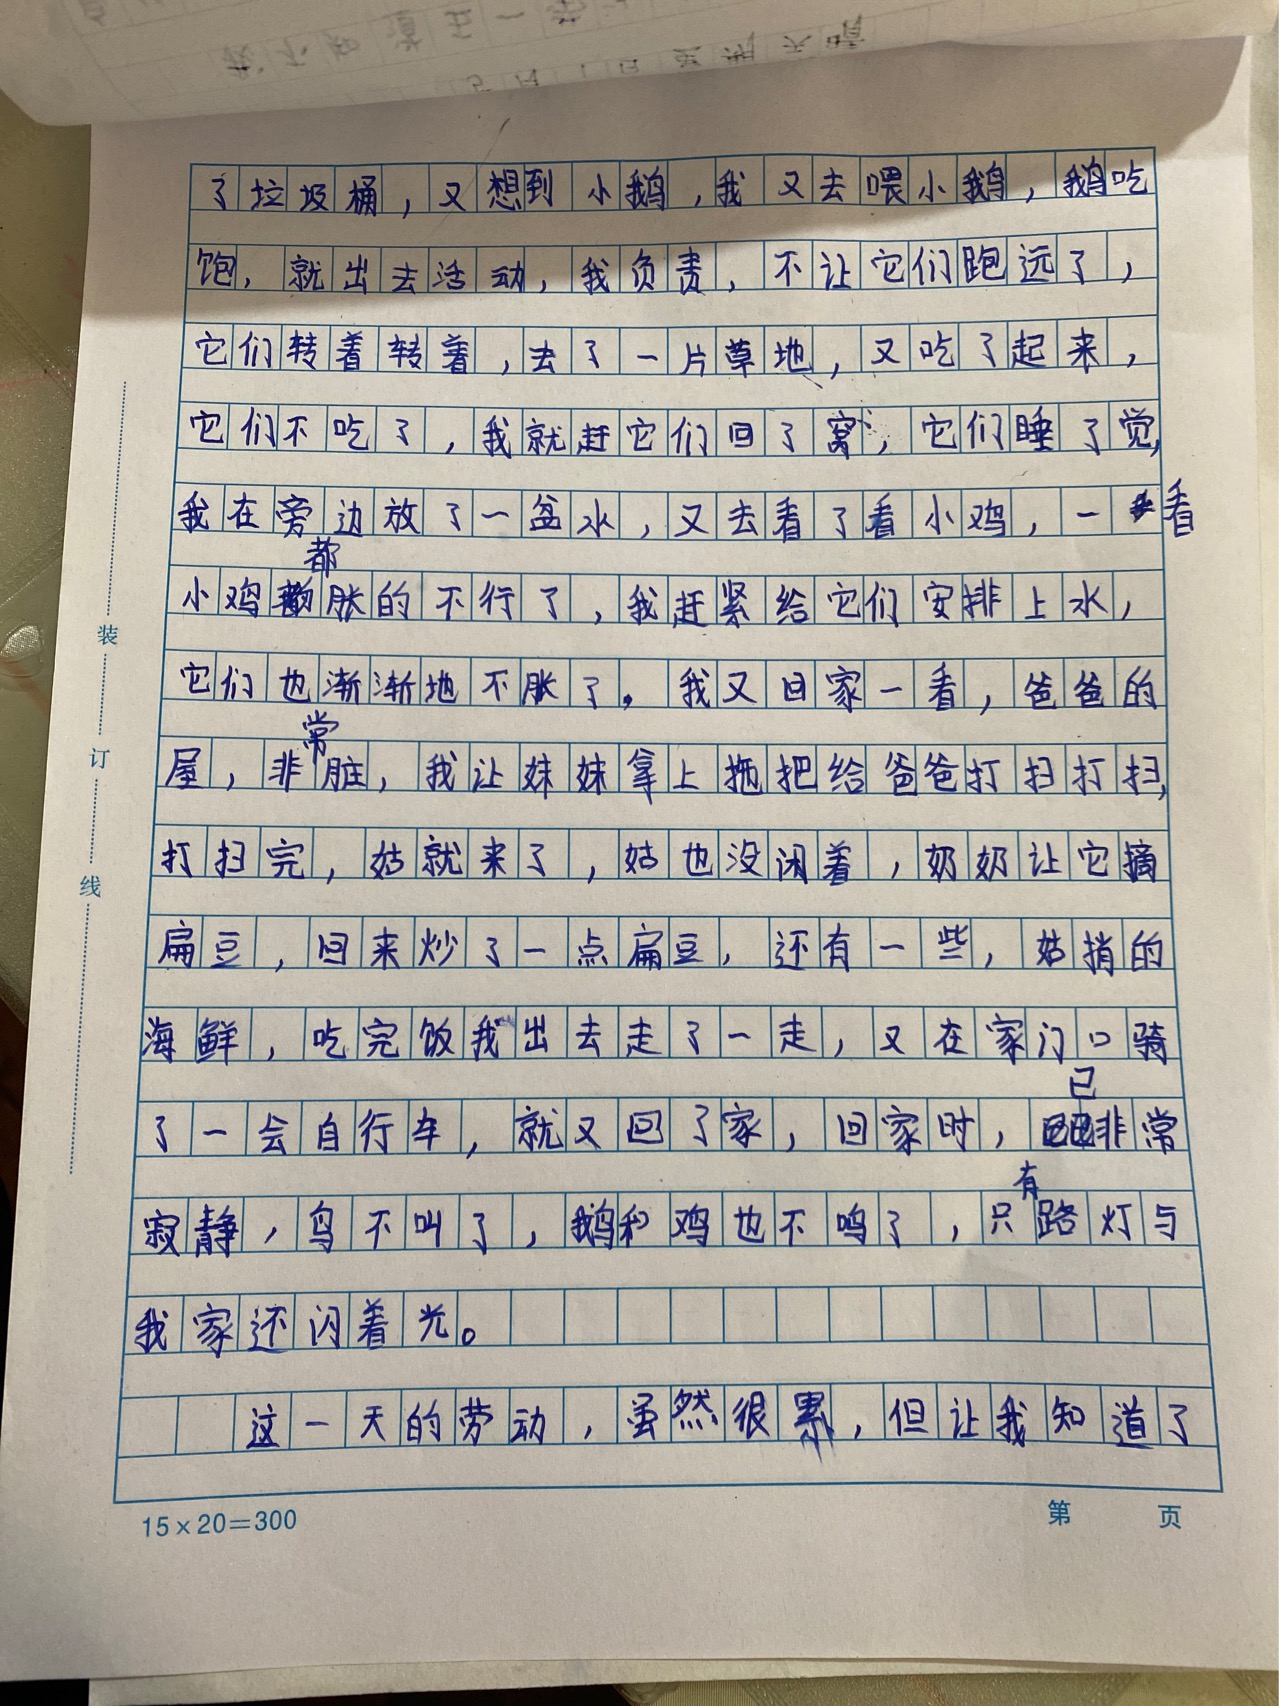 了垃圾桶，又想到小鹅，我又去喂小鹅，鹅吃
饱，就出去活动，我负责，不让它们跑远了，
它们转着转着，去了一片草地，又吃了起来，
它们不吃了，我就赶它们回了窝，它们睡了觉，
我在旁边放了一盆水，又去看了看小鸡，一看
小鸡都胀的不行了，我赶紧给它们安排上水，
它们也渐渐地不胀了。我又回家一看，爸爸的
屋，非常脏，我让妹妹拿上拖把给爸爸打扫打扫，
打扫完，姑就来了，姑也没闲着，奶奶让它摘
扁豆，回来炒了一点扁豆，还有一些，姑捎的
海鲜，吃完饭我出去走了一走，又在家门口骑
了一会自行车，就又回了家，回家时，已非常
寂静，鸟不叫了，鹅和鸡也不鸣了，只有路灯与
我家还闪着光。
这一天的劳动，虽然很累，但让我知道了
装
订
线
15×20=300
第 页